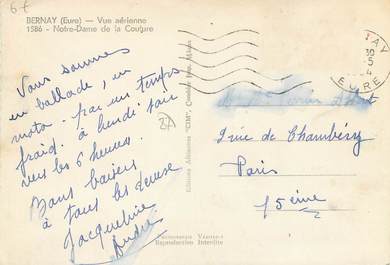 67
BERNAY (Eure) — Vue aérienne
1586 - Notre-Dame de la Couture
Nous sommes
en ballade, en
moto - par un temps
froid. à lundi soir
vers les 6 heures.
Bons baisers
à tous les deux
Jacqueline
André
87
Editions Aériennes "CIM"
Reproduction Interdite
EURE
rue de Chambéry
Paris
15ème